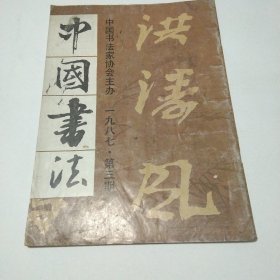 中國書法
中国书法家协会主办·一九八七·第三期
洪涛风